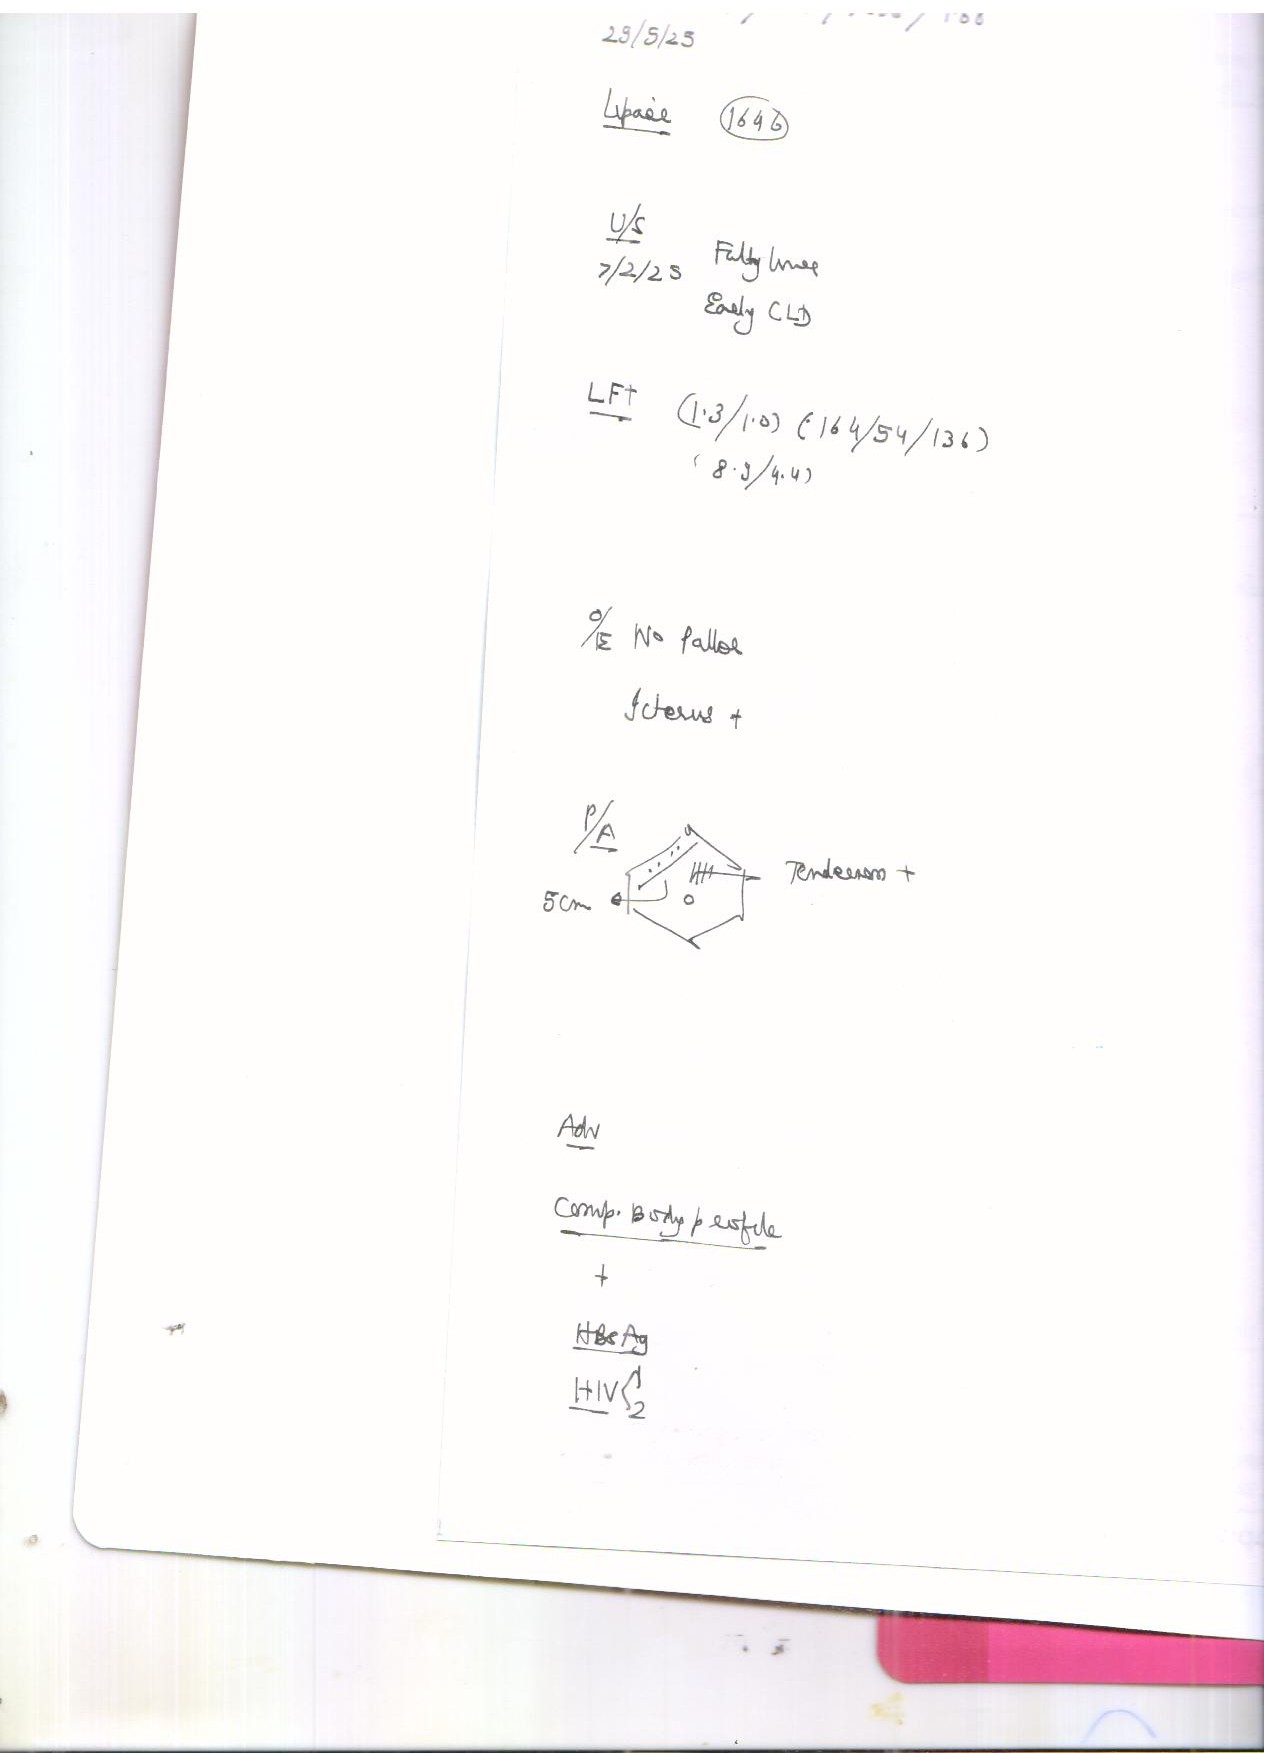 1.88
29/5/25
Lipase 1646
U/S
7/2/25 Fatty liver
Early CLD
LFT (1.3/1.0) (164/54/136)
(8.9/4.4)
O/E No Pallor
Icterus +
P/A
Tenderness +
5cm
Adv
Comp. Body profile
+
HBsAg
HIV 1
2